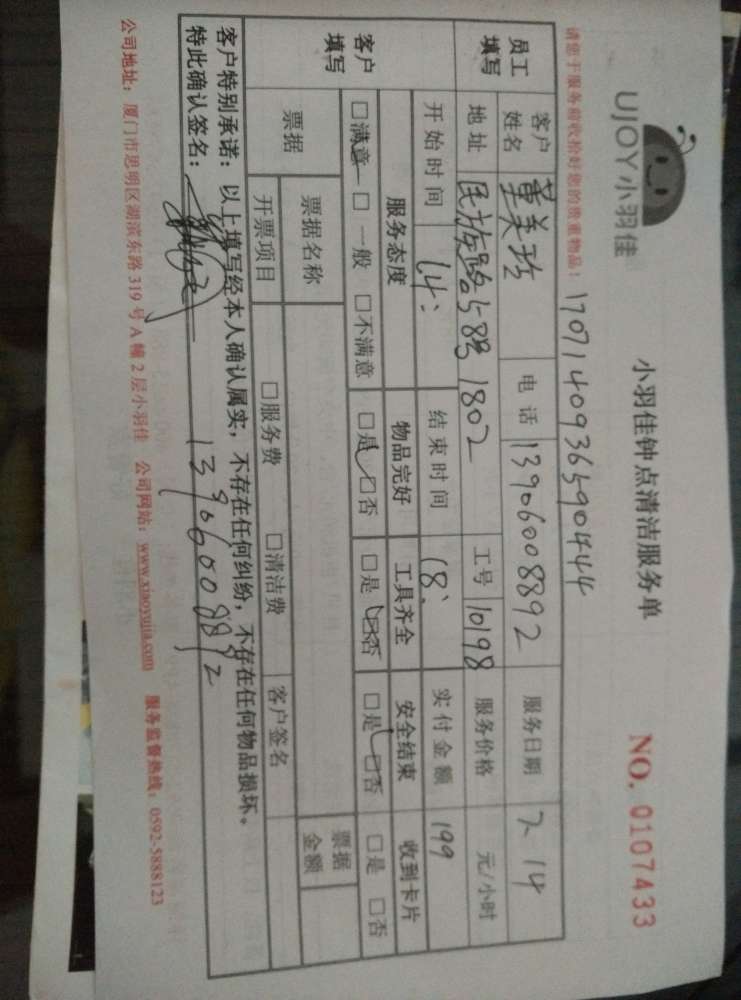 UJOY小羽佳
小羽佳钟点清洁服务单
NO. 0107433
请您于服务前收拾好您的贵重物品！
1707140936590444
员工填写
客户姓名 电话 13906008892 服务日期 7.14
地址 民族路58号1802 工号 10198 服务价格 元/小时
开始时间 14: 结束时间 18: 实付金额 199
客户填写
服务态度 物品完好 工具齐全 安全结束 收到卡片
□满意 □一般 □不满意 □是 □否 □是 □否 □是 □否 □是 □否
票据
票据名称 票据金额
开票项目 □服务费 □清洁费 客户签名
客户特别承诺：以上填写经本人确认属实，不存在任何纠纷，不存在任何物品损坏。
特此确认签名： 13906008892
公司地址：厦门市思明区湖滨东路319号A幢2层小羽佳 公司网站：www.xiaoyujia.com 服务监督热线：0592-5888123